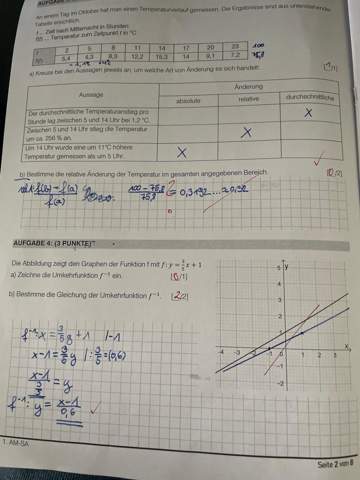 AUFGABE
An einem Tag im Oktober hat man einen Temperaturverlauf gemessen. Die Ergebnisse sind aus untenstehender
Tabelle ersichtlich.
t ... Zeit nach Mitternacht in Stunden
f(t) ... Temperatur zum Zeitpunkt t in °C
t 2 5 8 11 14 17 20 23 100
f(t) 5,4 4,3 8,3 12,2 15,3 14 9,1 7,2 75,8
a) Kreuze bei den Aussagen jeweils an, um welche Art von Änderung es sich handelt. /1)
Aussage Änderung
absolute relative durchschnittliche
Der durchschnittliche Temperaturanstieg pro
Stunde lag zwischen 5 und 14 Uhr bei 1,2 °C. X
Zwischen 5 und 14 Uhr stieg die Temperatur
um ca. 256 % an. X
Um 14 Uhr wurde eine um 11°C höhere
Temperatur gemessen als um 5 Uhr. X
b) Bestimme die relative Änderung der Temperatur im gesamten angegebenen Bereich. [0/2]
f(b) - f(a)
f(a)
100 - 75,8
75,8
= 0,3192
AUFGABE 4: (3 PUNKTE)
Die Abbildung zeigt den Graphen der Funktion f mit f: y = 3/5 x + 1
a) Zeichne die Umkehrfunktion f⁻¹ ein. [0/1]
b) Bestimme die Gleichung der Umkehrfunktion f⁻¹. [2/2]
f⁻¹: x = 3/5 y + 1 /-1
x-1 = 3/5 y /: 3/5 = (0,6)
x-1
3
5
= y
f⁻¹: y = x-1
0,6
y
5
4
3
2
1
-4 -3 -2 -1 1 2 3
x
-1
-2
1. AM-SA
Seite 2 von 8